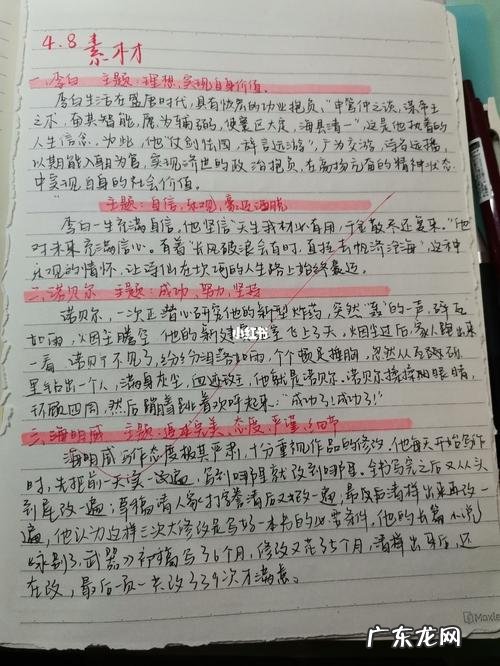 4.8 素材
一、李白 主题：理想，实现自身价值。
李白生活在盛唐时代，具有恢宏的功业抱负，“申管仲之谈，谋帝王
之术，奋其智能，愿为辅弼，使寰区大定，海县清一”，这是他执着的
人生信念。为此，他“仗剑去国，辞亲远游”，广为交游，谋者远播，
以期能入朝为官，实现济世的政治抱负，在高扬亢奋的精神状态
中实现自身的社会价值。
主题：自信，乐观，豪迈洒脱
李白一生充满自信。他坚信“天生我材必有用，千金散不还复来。”他
对未来充满信心。有着“长风破浪会有时，直挂云帆济沧海”这种
乐观的情怀，让诗仙在坎坷的人生路上始终豪迈。
二、诺贝尔 主题：成功、努力、坚持
诺贝尔，一次正潜心研究他的新型炸药，突然“轰”的一声，碎石
如雨，烟尘腾空 他的新 室飞上了天，烟尘过后，家人跑出来
一看 诺贝尔不见了，纷纷泪落如雨，个个顿足捶胸，忽然从瓦砾
里钻出一个人，满身灰尘，血迹 ，他就是诺贝尔。诺贝尔揉揉眼睛，
环顾四周，然后蹦着跳着欢呼起来：“成功了！成功了！”
三、海明威 主题：追求完美、态度、严谨、细节
海明威写作态度极其严肃，十分重视作品的修改。他每天开始写作
时，先把前一天 读一遍，写到哪里就改到哪里。全书写完之后又从头
到尾改一遍，草稿请人家打字誊清后又改一遍，最后清样出来再改一
遍，他认为这样三次大修改是写好一本书的必要条件，他的长篇小说
《永别了，武器》初稿写了6个月，修改又花了5个月，清样出来后，还
在改，最后一页一共改了39次才满意。
小红书
广东龙网